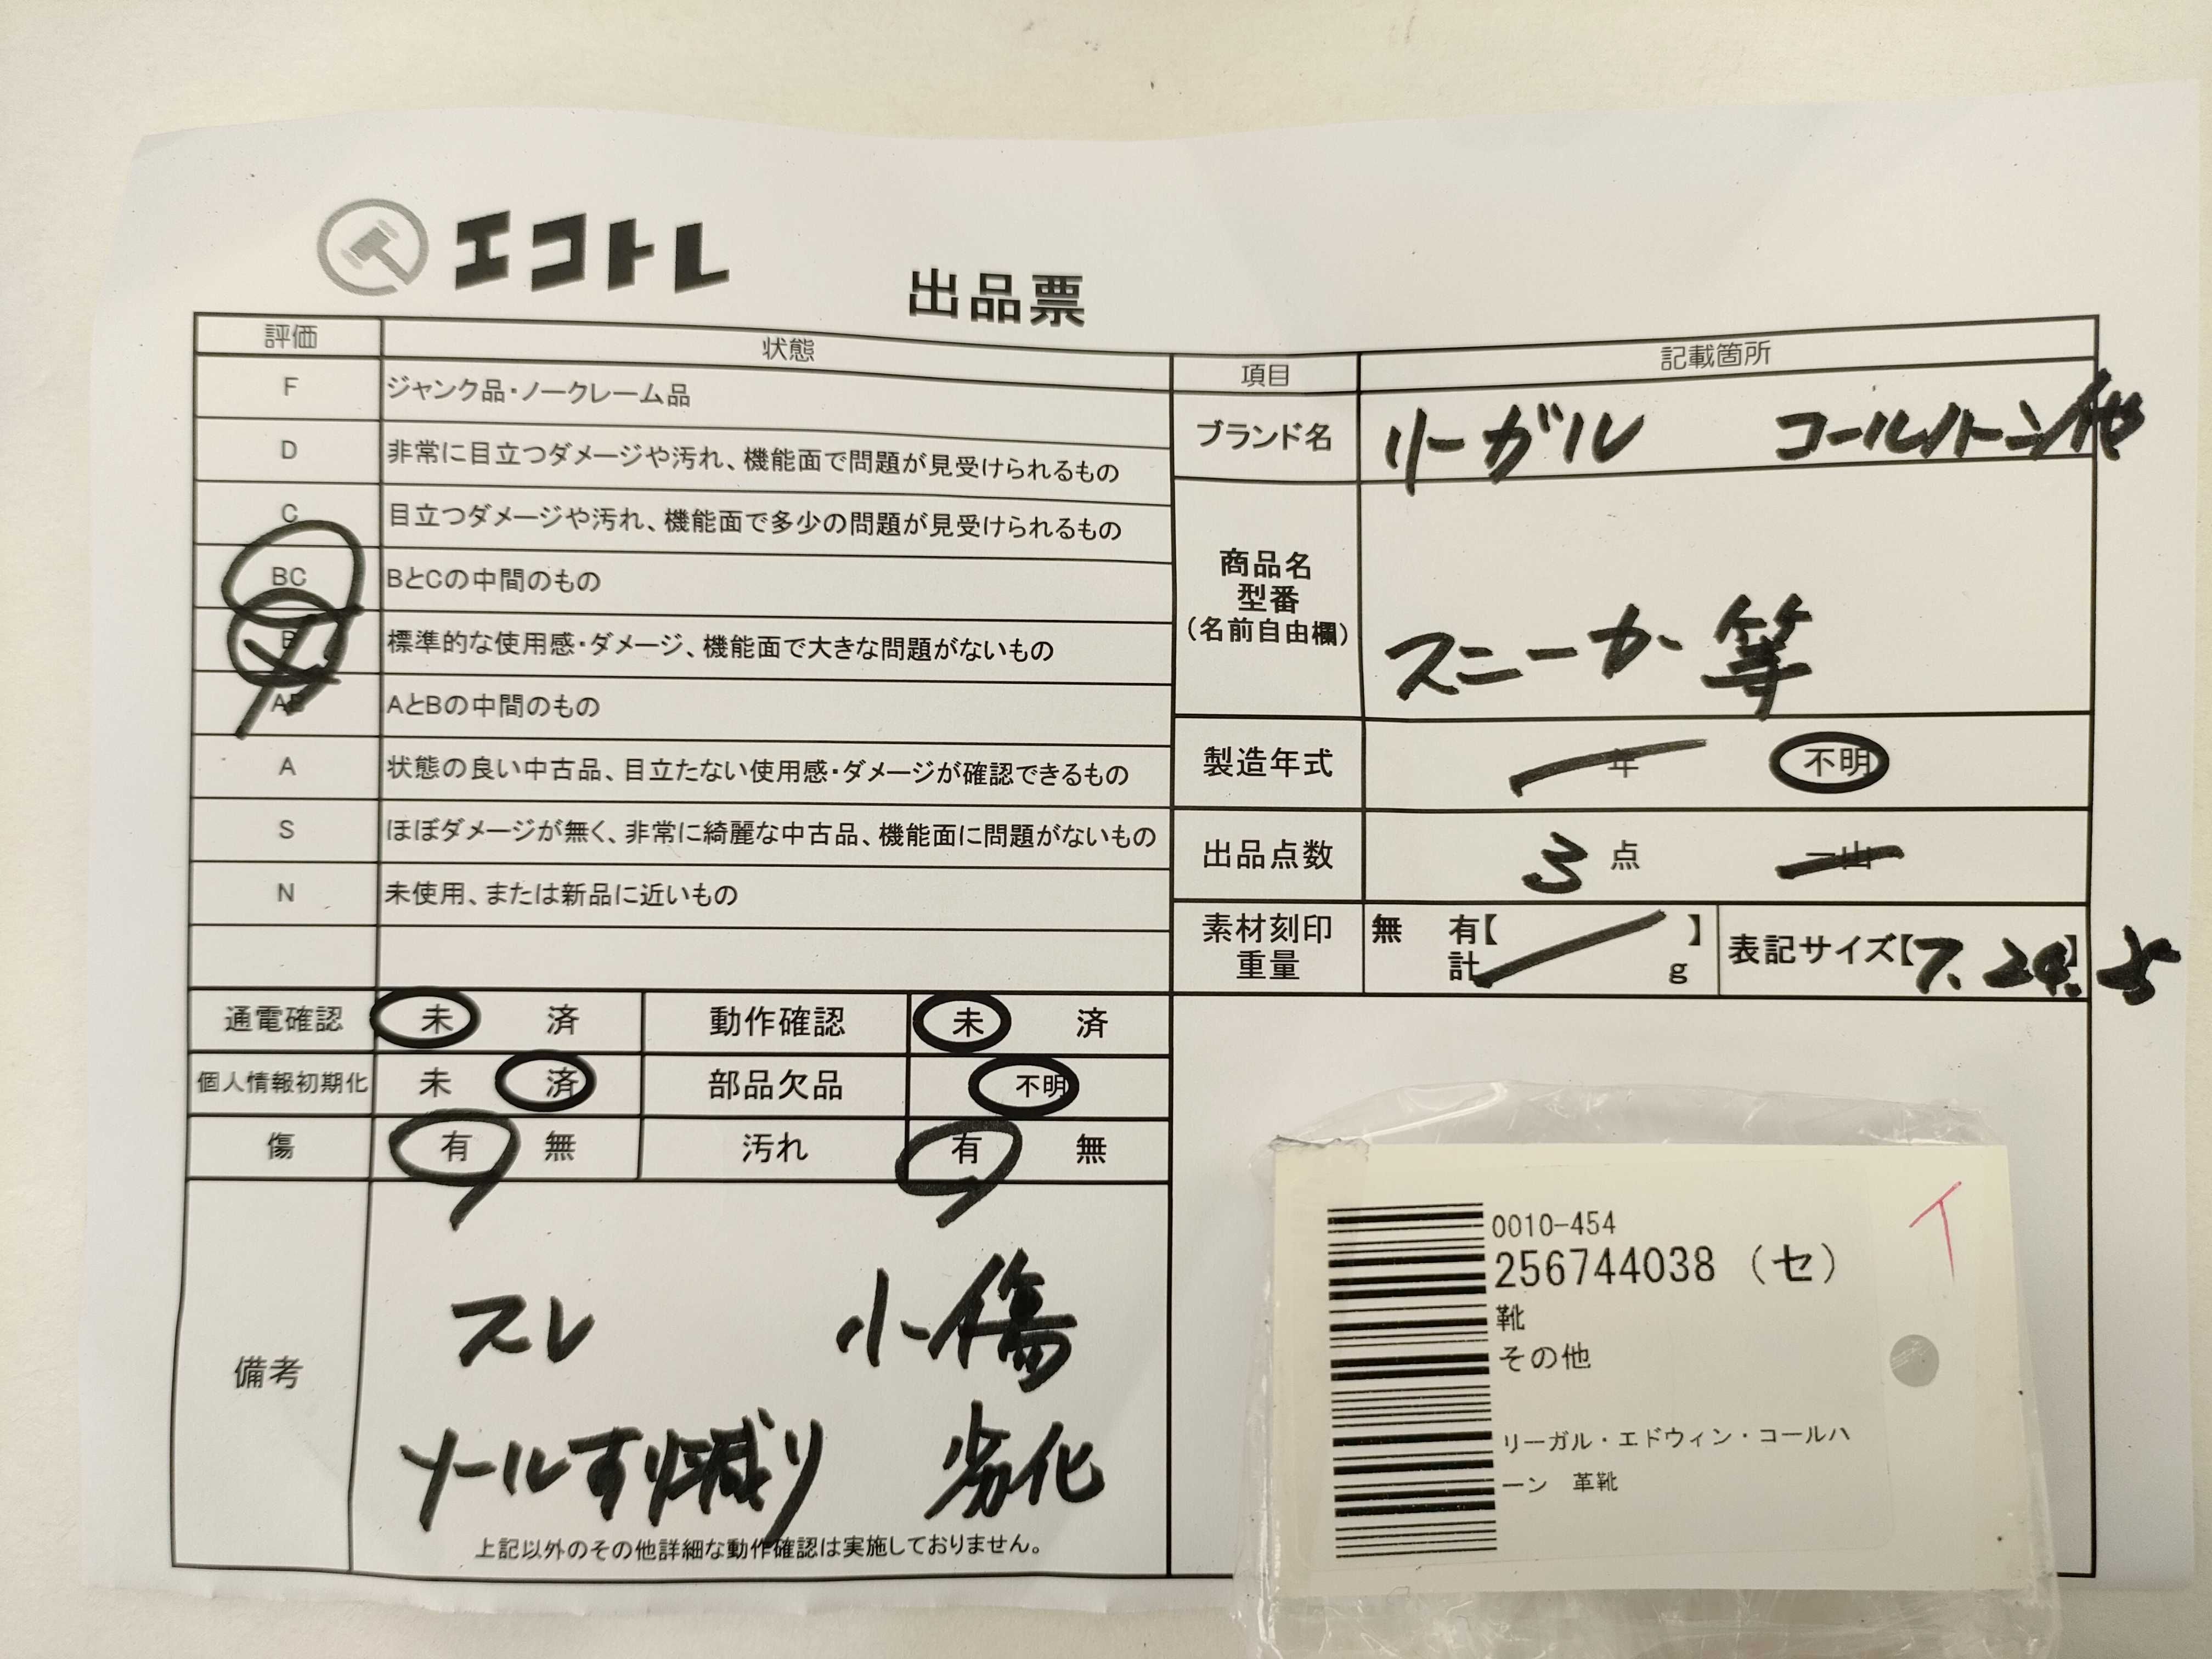 エコトレ
出品票
評価 状態
F ジャンク品・ノークレーム品
D 非常に目立つダメージや汚れ、機能面で問題が見受けられるもの
C 目立つダメージや汚れ、機能面で多少の問題が見受けられるもの
BC BとCの中間のもの
B 標準的な使用感・ダメージ、機能面で大きな問題がないもの
AB AとBの中間のもの
A 状態の良い中古品、目立たない使用感・ダメージが確認できるもの
S ほぼダメージが無く、非常に綺麗な中古品、機能面に問題がないもの
N 未使用、または新品に近いもの
項目 記載箇所
ブランド名 リーガル コールハーン/他
商品名
型番
(名前自由欄)
スニーカー等
製造年式 年 不明
出品点数 3 点 一山
素材刻印 無 有【 】
重量 計 g
表記サイズ【7. 24.5】
通電確認 未 済 動作確認 未 済
個人情報初期化 未 済 部品欠品 不明
傷 有 無 汚れ 有 無
備考
スレ 小傷
ソールすり減り 劣化
上記以外のその他詳細な動作確認は実施しておりません。
0010-454
256744038 (セ)
靴
その他
リーガル・エドウィン・コールハ
ーン 革靴
イ